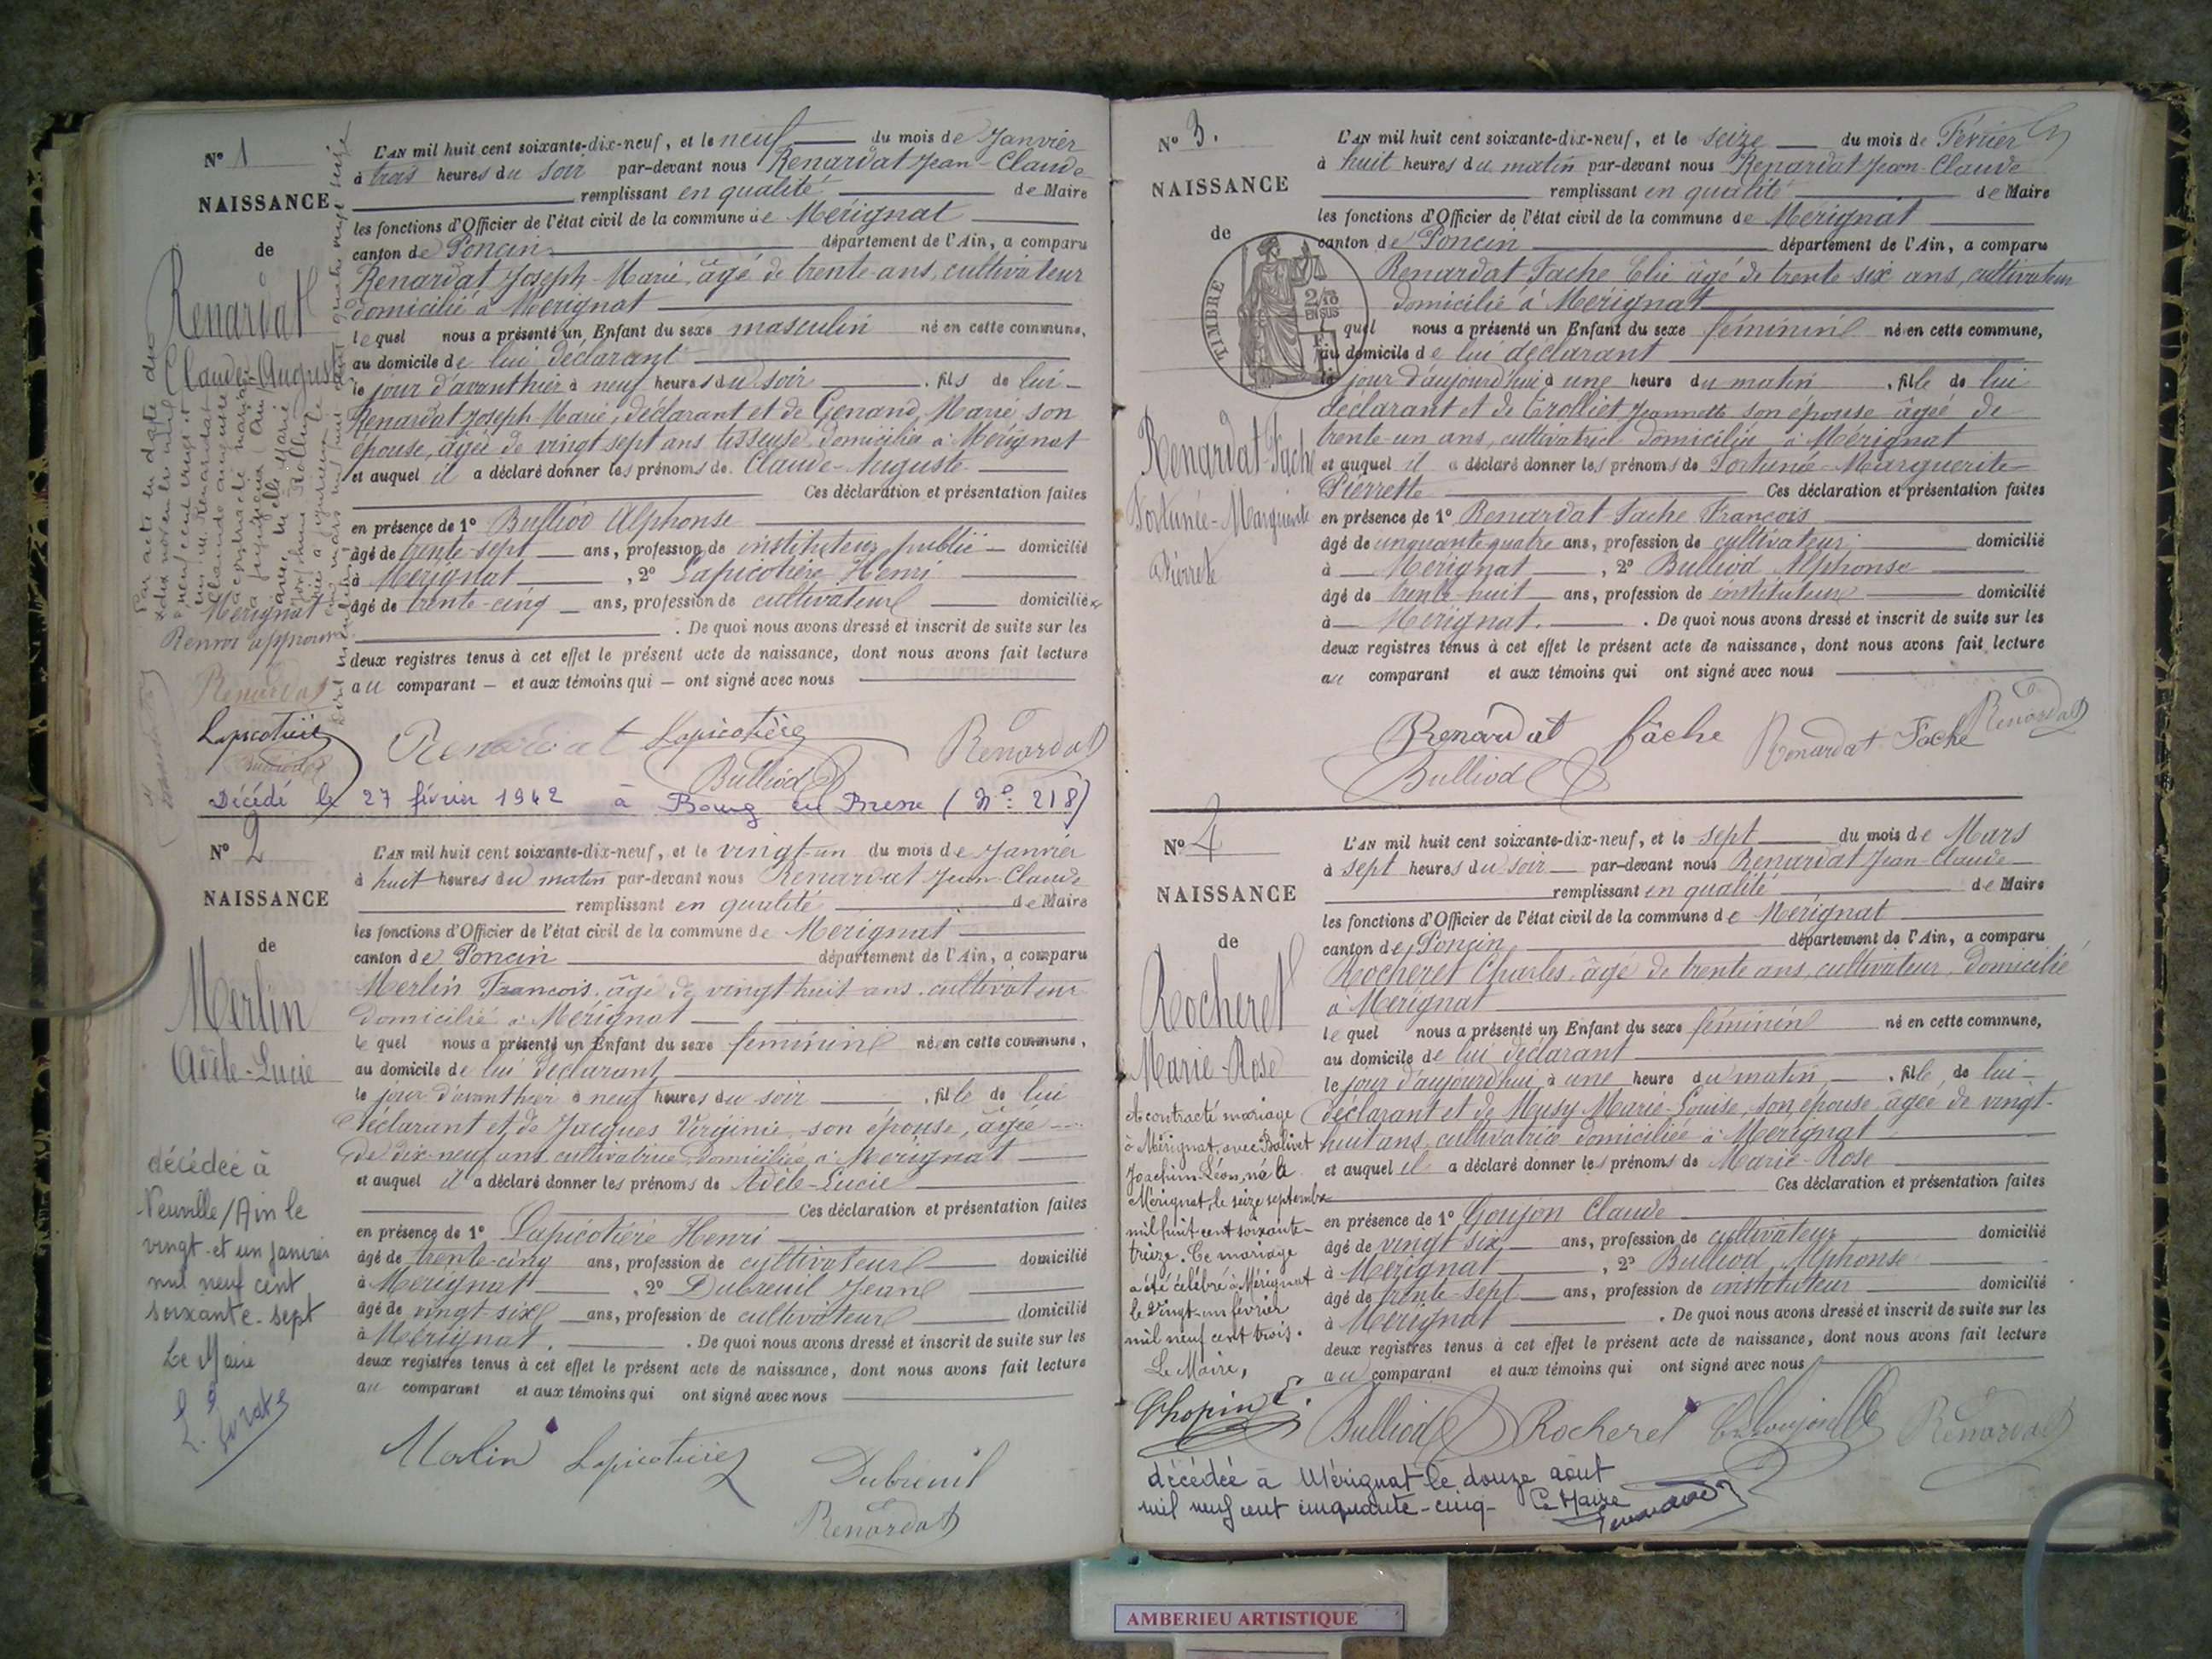 N° 1
NAISSANCE
de
Renardat
Claude-Auguste
Mérignat
Renvoi approuvé
Renardat
Lapicotière
L'AN mil huit cent soixante-dix-neuf, et le neuf du mois de Janvier
à trois heures du soir par-devant nous Renardat Jean-Claude
remplissant en qualité de Maire
les fonctions d'Officier de l'état civil de la commune de Mérignat
canton de Poncin département de l'Ain, a comparu
Renardat Joseph-Marie, âgé de trente ans, cultivateur
domicilié à Mérignat
lequel nous a présenté un Enfant du sexe masculin né en cette commune,
au domicile de lui déclarant
le jour d'avanthier à neuf heures du soir, fils de lui
Renardat Joseph Marie, déclarant et de Genand, Marie, son
épouse, âgée de vingt sept ans tisseuse domiciliée à Mérignat
et auquel il a déclaré donner les prénoms de Claude-Auguste
Ces déclaration et présentation faites
en présence de 1° Bulliod Alphonse
âgé de trente-sept ans, profession de instituteur public domicilié
à Mérignat, 2° Lapicotière Henri
âgé de trente-cinq ans, profession de cultivateur domicilié
. De quoi nous avons dressé et inscrit de suite sur les
deux registres tenus à cet effet le présent acte de naissance, dont nous avons fait lecture
au comparant — et aux témoins qui — ont signé avec nous
Renardat Lapicotière Renardat
Bulliod
Décédé le 27 février 1942 à Bourg en Bresse (N°: 218)
N° 2
NAISSANCE
de
Merlin
Adèle-Lucie
décédée à
Neuville/Ain le
vingt-et un janvier
mil neuf cent
soixante-sept
Le Maire
L'AN mil huit cent soixante-dix-neuf, et le vingt-un du mois de Janvier
à huit heures du matin par-devant nous Renardat Jean-Claude
remplissant en qualité de Maire
les fonctions d'Officier de l'état civil de la commune de Mérignat
canton de Poncin département de l'Ain, a comparu
Merlin François, âgé de vingt huit ans, cultivateur
domicilié à Mérignat
lequel nous a présenté un Enfant du sexe féminin né en cette commune,
au domicile de lui déclarant
le jour d'avanthier à neuf heures du soir, fille de lui
déclarant et de Jacques Virginie, son épouse, âgée
de dix-neuf ans, cultivatrice domiciliée à Mérignat
et auquel il a déclaré donner les prénoms de Adèle-Lucie
Ces déclaration et présentation faites
en présence de 1° Lapicotière Henri
âgé de trente-cinq ans, profession de cultivateur domicilié
à Mérignat, 2° Dubreuil Jean
âgé de vingt-six ans, profession de cultivateur domicilié
à Mérignat. De quoi nous avons dressé et inscrit de suite sur les
deux registres tenus à cet effet le présent acte de naissance, dont nous avons fait lecture
au comparant et aux témoins qui ont signé avec nous
Merlin Lapicotière Dubreuil
Renardat
N° 3.
NAISSANCE
de
TIMBRE
2/10
EN SUS
Renardat-Fache
Fortunée-Marguerite
Pierrette
L'AN mil huit cent soixante-dix-neuf, et le seize du mois de Février
à huit heures du matin par-devant nous Renardat Jean-Claude
remplissant en qualité de Maire
les fonctions d'Officier de l'état civil de la commune de Mérignat
canton de Poncin département de l'Ain, a comparu
Renardat-Fache Elie âgé de trente-six ans, cultivateur
domicilié à Mérignat
lequel nous a présenté un Enfant du sexe féminin né en cette commune,
au domicile de lui déclarant
le jour d'aujourd'hui à une heure du matin, fille de lui
déclarant et de Trolliet Jeannette son épouse âgée de
trente-un ans, cultivatrice domiciliée à Mérignat
et auquel il a déclaré donner les prénoms de Fortunée-Marguerite
Pierrette Ces déclaration et présentation faites
en présence de 1° Renardat-Fache François
âgé de cinquante-quatre ans, profession de cultivateur domicilié
à Mérignat, 2° Bulliod Alphonse
âgé de trente-huit ans, profession de instituteur domicilié
à Mérignat. De quoi nous avons dressé et inscrit de suite sur les
deux registres tenus à cet effet le présent acte de naissance, dont nous avons fait lecture
au comparant et aux témoins qui ont signé avec nous
Renardat fâche Renardat Fache Renardat
Bulliod
N° 4
NAISSANCE
de
Rocheret
Marie-Rose
A contracté mariage
à Mérignat, avec Balivet
Joachim-Léon, né à
Mérignat, le seize septembre
mil huit cent soixante-
treize. Ce mariage
a été célébré à Mérignat
le vingt-un février
mil neuf cent trois.
Le Maire,
Chopin
L'AN mil huit cent soixante-dix-neuf, et le sept du mois de Mars
à sept heures du soir par-devant nous Renardat Jean-Claude
remplissant en qualité de Maire
les fonctions d'Officier de l'état civil de la commune de Mérignat
canton de Poncin département de l'Ain, a comparu
Rocheret Charles, âgé de trente ans, cultivateur, domicilié
à Mérignat
lequel nous a présenté un Enfant du sexe féminin né en cette commune,
au domicile de lui déclarant
le jour d'aujourd'hui à une heure du matin, fille de lui
déclarant et de Musy Marie-Louise, son épouse âgée de vingt-
huit ans, cultivatrice domiciliée à Mérignat
et auquel il a déclaré donner les prénoms de Marie-Rose
Ces déclaration et présentation faites
en présence de 1° Goujon Claude
âgé de vingt-six ans, profession de cultivateur domicilié
à Mérignat, 2° Bulliod Alphonse
âgé de trente-sept ans, profession de instituteur domicilié
à Mérignat. De quoi nous avons dressé et inscrit de suite sur les
deux registres tenus à cet effet le présent acte de naissance, dont nous avons fait lecture
au comparant et aux témoins qui ont signé avec nous
Bulliod Rocheret Renardat
décédée à Mérignat le douze août
mil neuf cent cinquante-cinq- Le Maire
AMBERIEU ARTISTIQUE